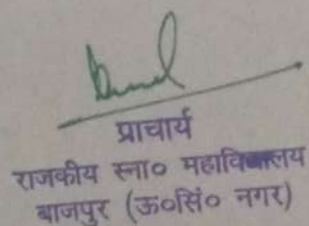 प्राचार्य
राजकीय स्ना० महाविद्यालय
बाजपुर (ऊ०सिं० नगर)